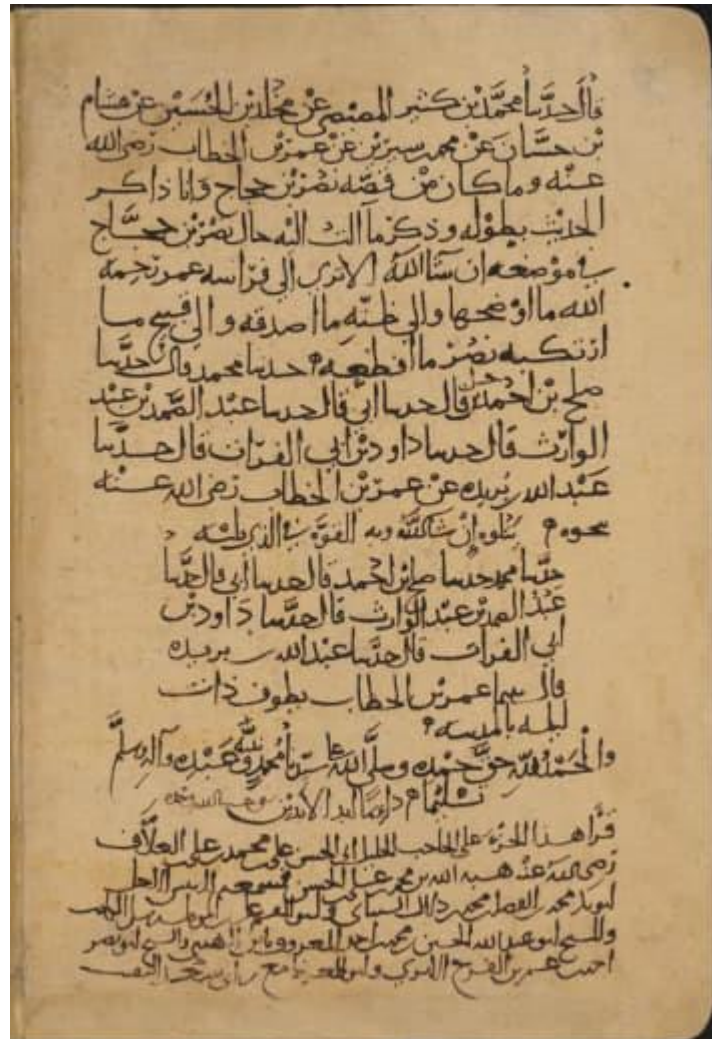 قال حدثنا محمد بن كثير المصيصي عن مخلد بن الحسين عن هشام
بن حسان عن محمد بن سيرين عن عمر بن الخطاب رضي الله
عنه وما كان من قصة نصر بن حجاج وانا ذاكر
الحديث بطوله وذكر ما آلت اليه حال نصر بن حجاج
في موضعه ان شا الله الا ترى الي فراسه عمر رحمه
الله ما اوضحها والي ظنه ما اصدقه والي قبيح ما
ارتكبه نصر ما افظعه حدثنا محمد قال حدثنا
صلح بن احمد قال حدثنا ابي قال حدثنا عبد الصمد بن عبد
الوارث قال حدثنا داود بن ابي الفرات قال حدثنا
عبد الله بن بريده عن عمر بن الخطاب رضي الله عنه
بنحوه يتلوه ان شا الله وبه القوة في الذي يليه
حدثنا محمد حدثنا صلح بن احمد قال حدثنا ابي قال حدثنا
عبد الصمد بن عبد الوارث قال حدثنا داود بن
ابي الفرات قال حدثنا عبد الله بن بريده
قال بينما عمر بن الخطاب يطوف ذات
ليله بالمدينه
والحمد لله حق حمده وصلى الله على سيدنا محمد نبيه وعبده وآله وسلم
تسليما دايما ابد الابدين
قرا هذا الجزء على الحاجب الجليل ابي الحسن علي بن محمد بن علي العلاف
رضي الله عنه هبة الله بن محمد بن علي الحسن فسمعه الرئيس
ابو محمد
والشيخ ابو عبد الله الحسين بن محمد المعروف والشيخ ابو نصر
احمد بن عمر بن الفرج